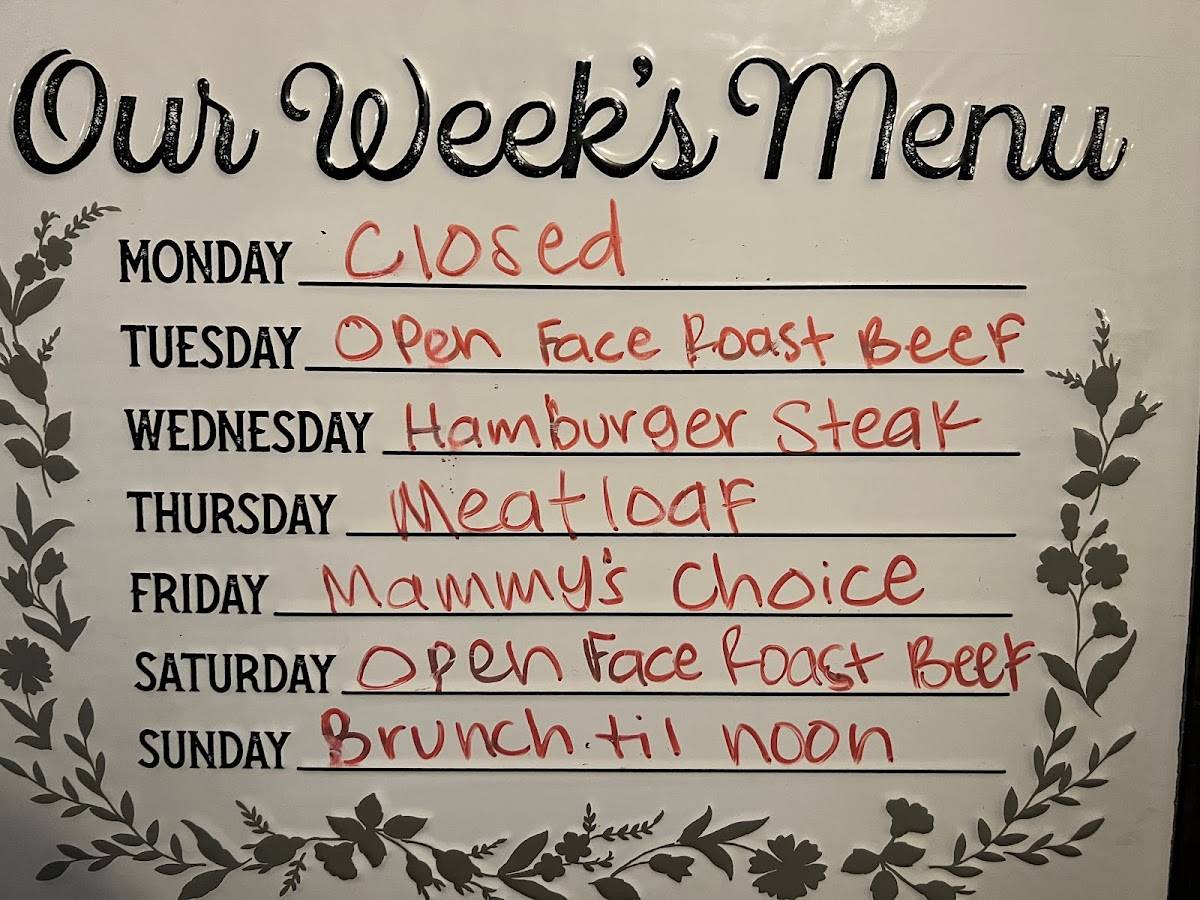 Our Week's Menu
MONDAY Closed
TUESDAY Open Face Roast Beef
WEDNESDAY Hamburger Steak
THURSDAY Meatloaf
FRIDAY Mammy's Choice
SATURDAY Open Face Roast Beef
SUNDAY Brunch til noon